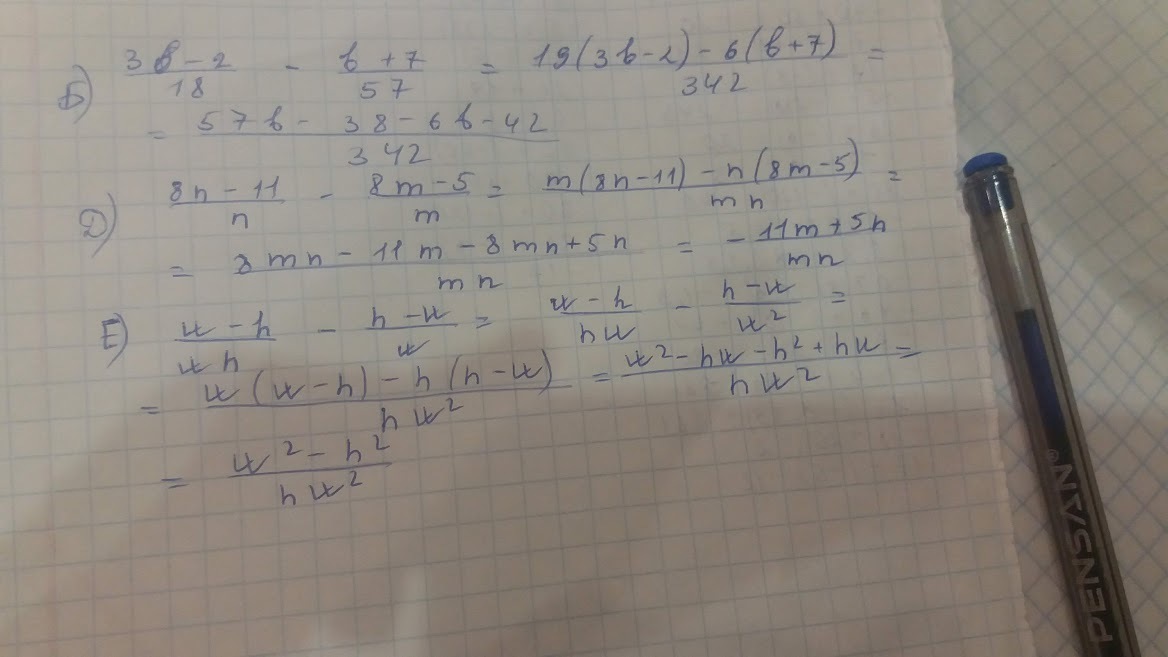 Б) (3b-2)/18 - (b+7)/57 = (19(3b-2)-6(b+7))/342 =
= (57b-38-6b-42)/342
Д) (8n-11)/n - (8m-5)/m = (m(8n-11)-n(8m-5))/mn =
= (8mn-11m-8mn+5n)/mn = (-11m+5n)/mn
Е) (k-h)/kh - (h-k)/k = (k-h)/hk - (h-k)/k² =
= (k(k-h)-h(h-k))/hk² = (k²-hk-h²+hk)/hk² =
= (k²-h²)/hk²
PENSAN®